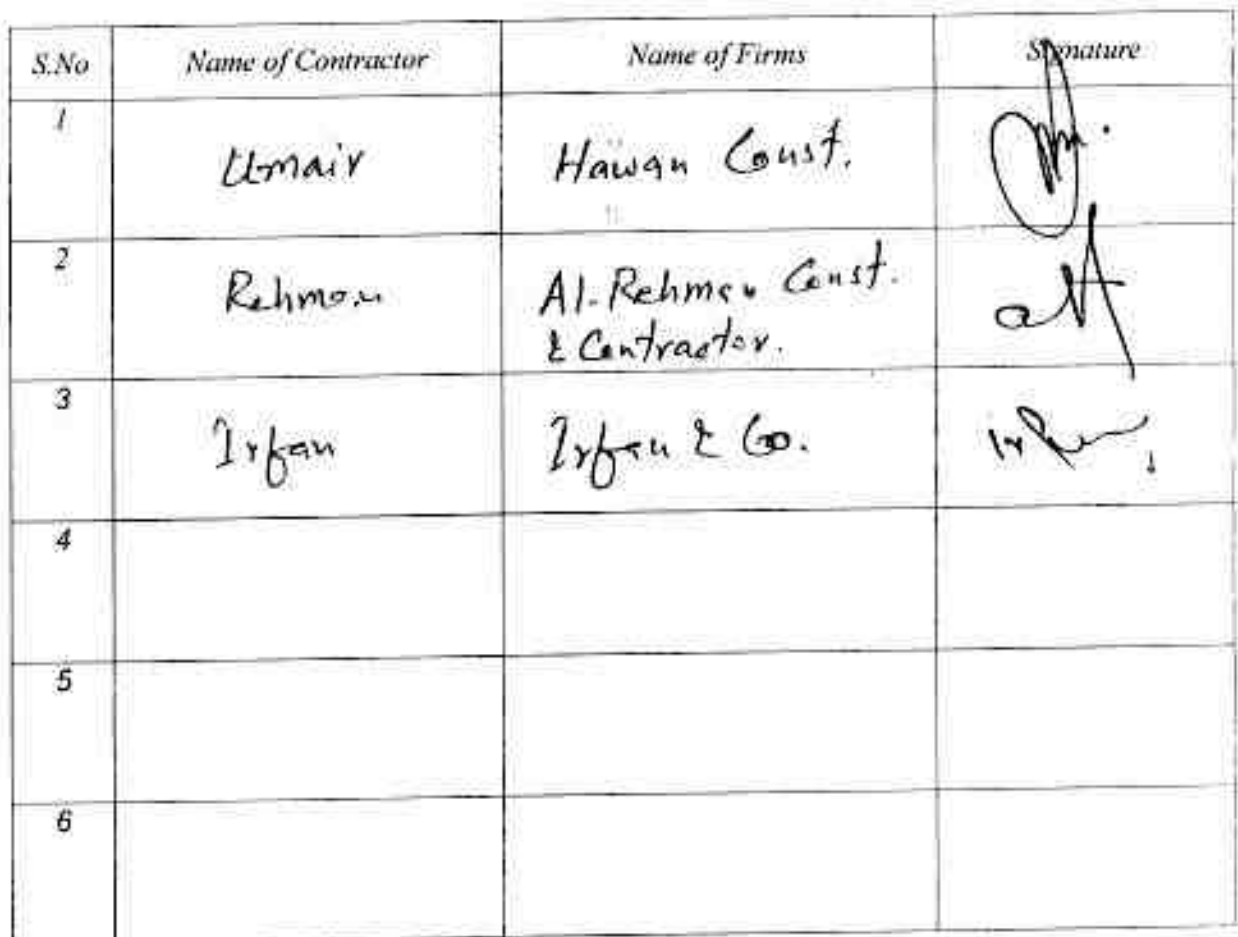 S.No Name of Contractor Name of Firms Signature
1 Umair Hawan Const.
2 Rehman Al-Rehman Const.
& Contractor.
3 Irfan Irfan & Co.
4
5
6